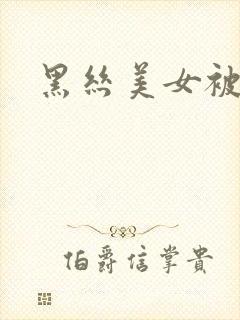 黑丝美女被
伯爵信掌贵